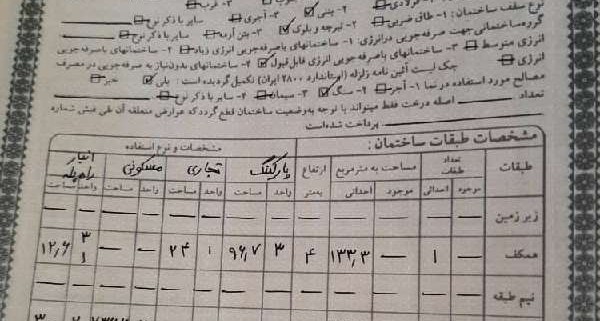 ۲- بتنی ☑ ۳- آجری
نوع سقف ساختمان: ۱- طاق ضربی ۲- تیرچه و بلوک ☑ ۳- بتن آرمه سایر با ذکر نوع
گروه ساختمانی جهت صرفه‌جویی درانرژی: ۱- ساختمانهای باصرفه‌جویی انرژی زیاد ۲- ساختمانهای باصرفه‌جویی
انرژی متوسط ۳- ساختمانهای باصرفه‌جویی انرژی قابل قبول ☑ ۴- ساختمانهای بدون‌نیاز به صرفه‌جویی در مصرف
انرژی چک لیست آئین نامه زلزله (استاندارد ۲۸۰۰ ایران) تکمیل گردیده است: بلی ☑ خیر
مصالح مورد استفاده در نما ۱- آجر ۲- سنگ ☑ ۳- سیمان ۴- سایر با ذکر نوع
تعداد اصله درخت فقط میتواند با توجه به‌وضعیت ساختمان قطع گردد که عوارض متعلقه آن طی فیش شماره
پرداخت شده‌است
مشخصات طبقات ساختمان:
طبقات تعداد طبقات مساحت به مترمربع ارتفاع بمتر مشخصات و نوع استفاده
پارکینگ تجاری مسکونی انبار راه پله
موجود احداثی موجود احداثی واحد مساحت واحد مساحت واحد مساحت واحد مساحت
زیر زمین — — — — — — — — — — — — —
همکف — ۱ — ۱۳۳,۳ ۴ ۳ ۹۶,۷ ۱ ۲۴ — — ۳ ۱ ۱۲,۶
نیم طبقه — — — — — — — — — — — — —